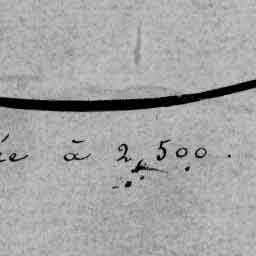 ée à 2,500.